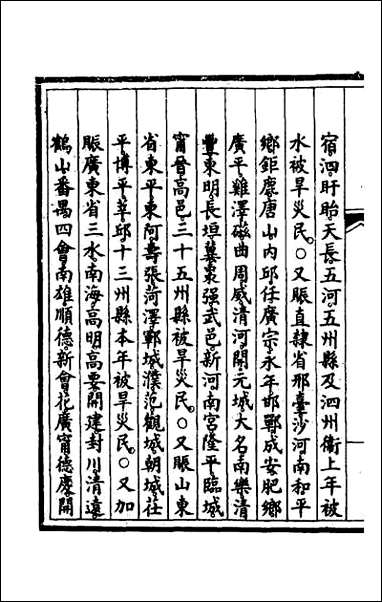 宿泗盱眙天長五河五州縣及泗州衛上年被
水被旱災民〇又賑直隸省邢臺沙河南和平
鄉鉅鹿唐山內邱任廣宗永年邯鄲成安肥鄉
廣平雞澤磁曲周威清河開元城大名南樂清
豐東明長垣冀棗强武邑新河南宮隆平臨城
甯晉高邑三十五州縣被旱災民〇又賑山東
省東平東阿壽張菏澤鄆城濮范觀城朝城茌
平博平莘邱十三州縣本年被旱災民〇又加
賑廣東省三水南海高明高要開建封川清遠
鶴山番禺四會南雄順德新會花廣甯德慶開